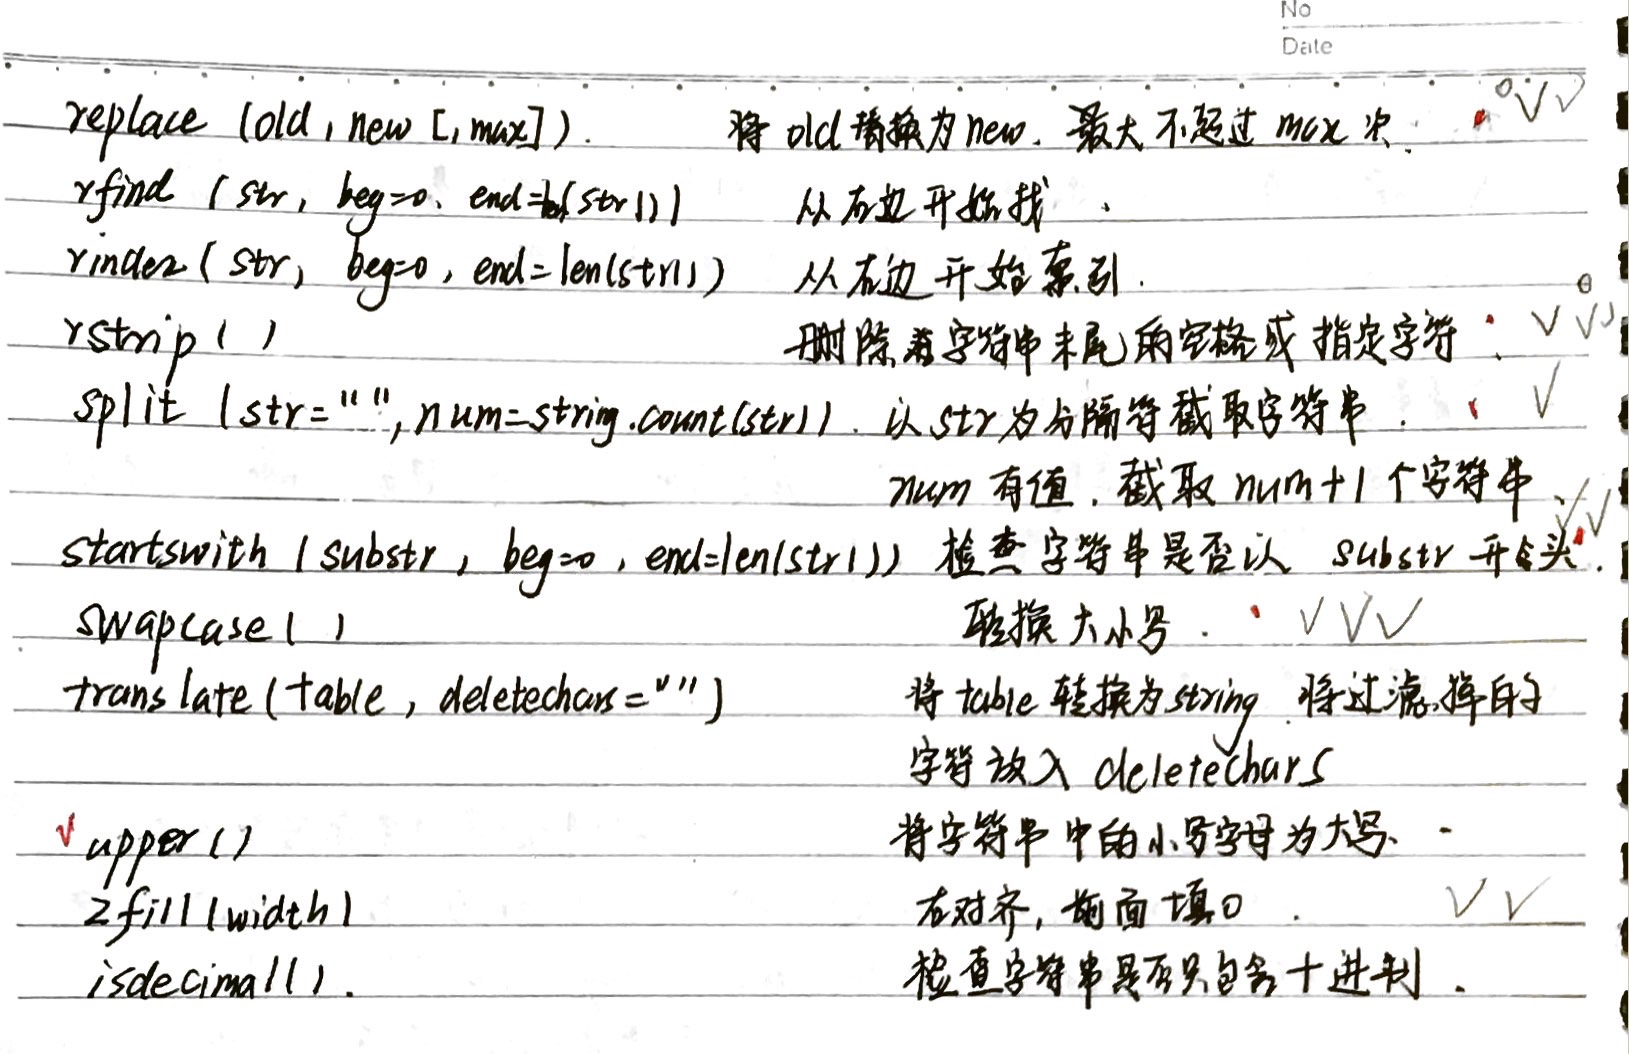 No
Date
replace (old, new [, max]). 将 old 替换为 new. 最大不超过 max 次.
rfind (str, beg=0, end=len(str)) 从右边开始找.
rindex (str, beg=0, end=len(str)) 从右边开始索引.
rstrip ( ) 删除字符串末尾的空格或指定字符.
split (str="", num=string.count(str)). 以 str 为分隔符截取字符串.
num 有值. 截取 num+1 个字符串.
startswith (substr, beg=0, end=len(str)) 检查字符串是否以 substr 开头.
swapcase ( ) 转换大小写.
translate (table, deletechars="") 将 table 转换为 string. 将过滤掉的
字符放入 deletechars
upper () 将字符串中的小写字母为大写.
zfill (width) 右对齐, 前面填0.
isdecimal (). 检查字符串是否只包含十进制.